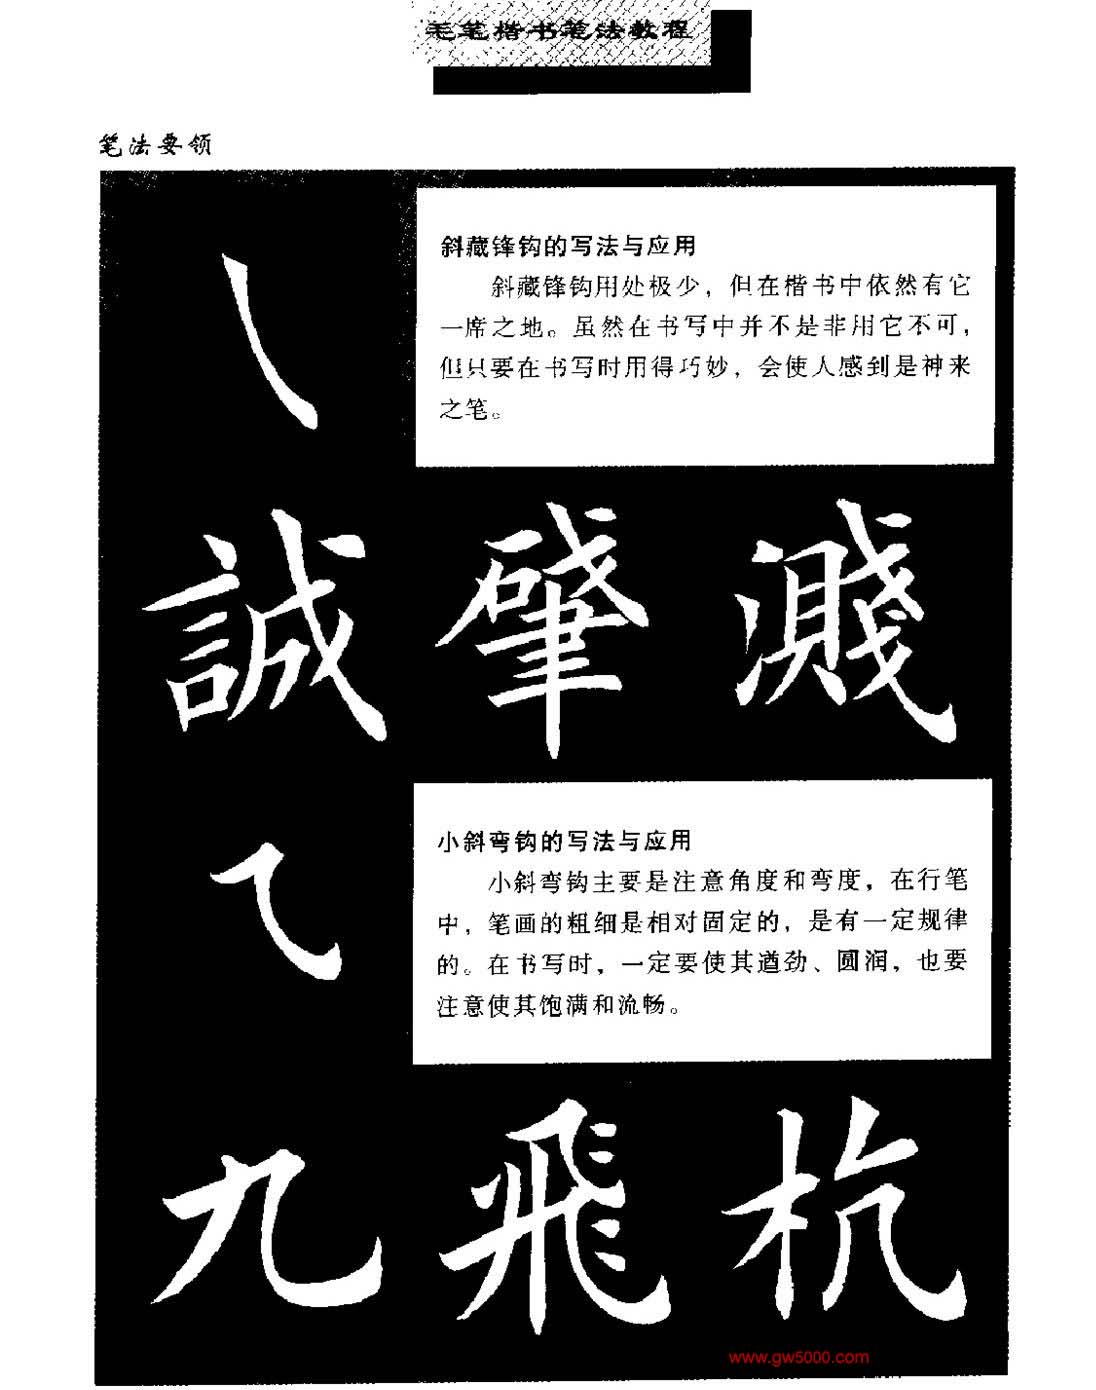 毛笔楷书笔法教程
笔法要领
斜藏锋钩的写法与应用
斜藏锋钩用处极少，但在楷书中依然有它
一席之地。虽然在书写中并不是非用它不可，
但只要在书写时用得巧妙，会使人感到是神来
之笔。
誠肇濺
小斜弯钩的写法与应用
小斜弯钩主要是注意角度和弯度，在行笔
中，笔画的粗细是相对固定的，是有一定规律
的。在书写时，一定要使其遒劲、圆润，也要
注意使其饱满和流畅。
九飛杭
www.gw5000.com